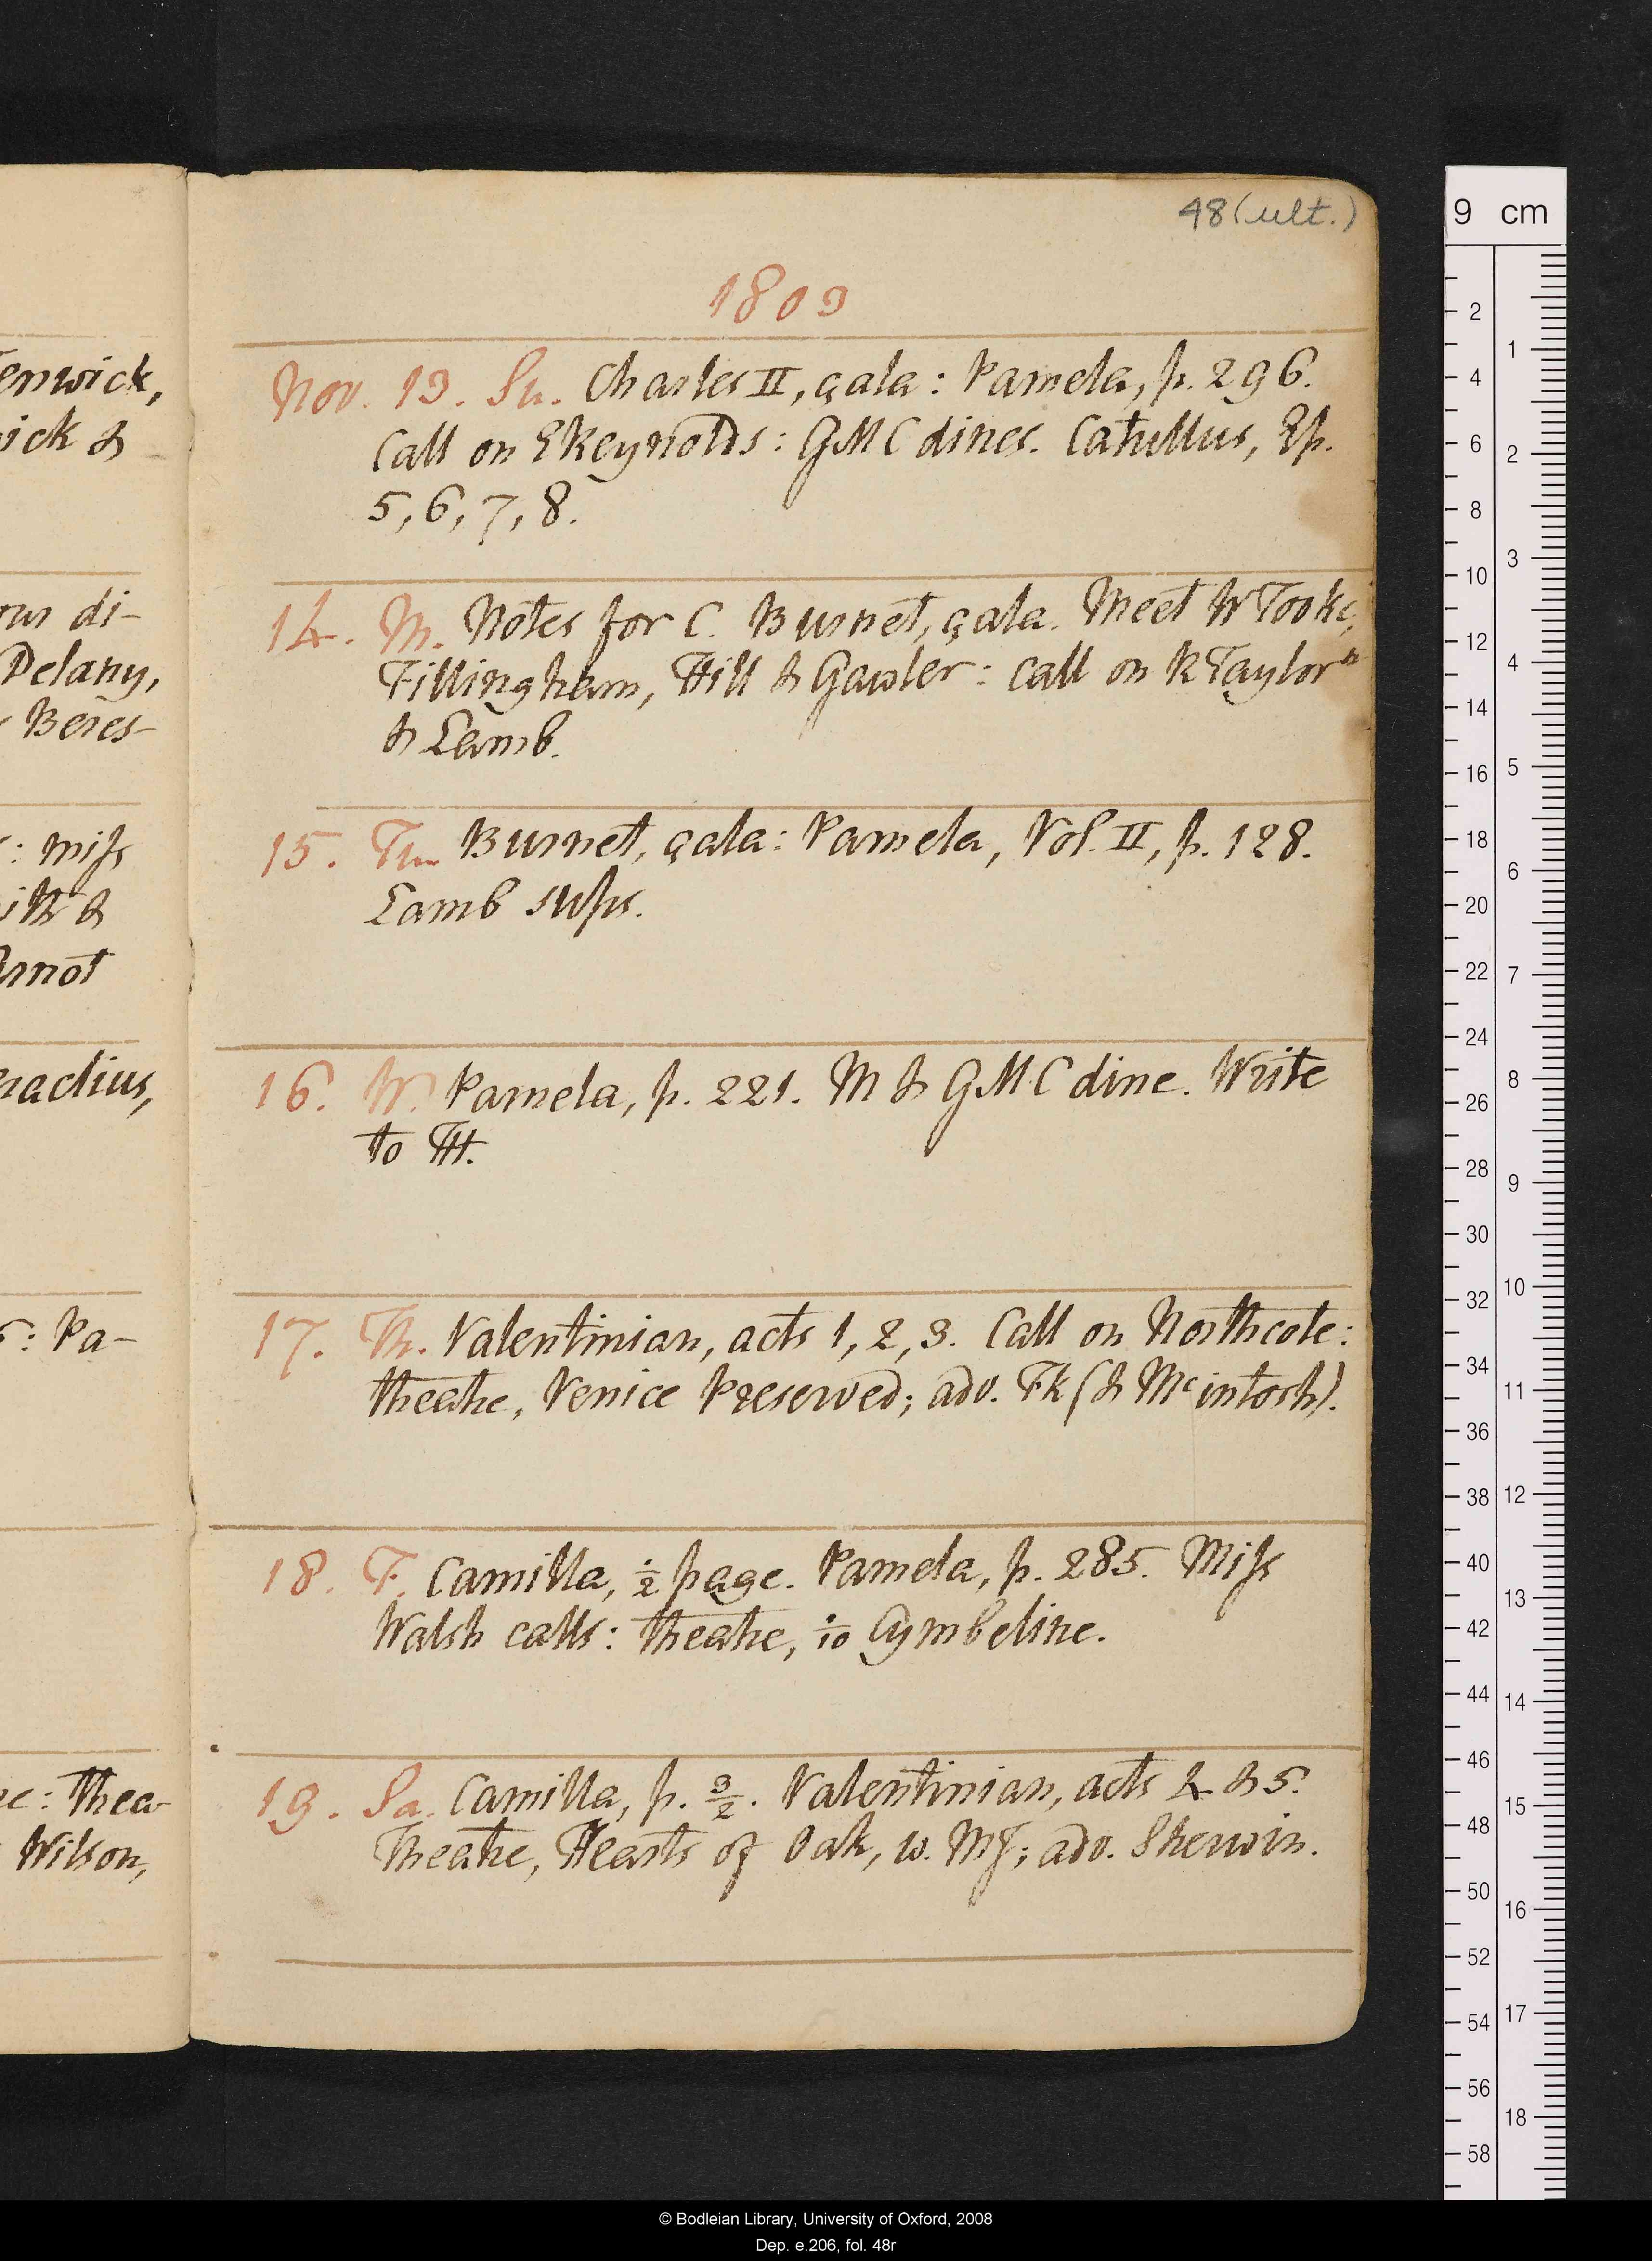 enwick,
ick &
rus di-
Delany,
Beres-
: miss
ith &
rnot
raclius,
: Pa-
e: thea-
Wilson,
48 (ult.)
1803
Nov. 13. Su. Charles II, çala: Pamela, p. 296.
Call on E Reynolds: GMC dines. Catullus, Ep.
5, 6, 7, 8.
14. M. Notes for C. Burnet, çala. Meet W Tooke,
Fillingham, Hill & Gawler: call on R Taylor n
& Lamb.
15. Tu. Burnet, çala: Pamela, Vol. II, p. 128.
Lamb sups.
16. W. Pamela, p. 221. M & GMC dine. Write
to TH.
17. Th. Valentinian, acts 1, 2, 3. Call on Northcote:
theatre, Venice Preserved; adv. Fk (& Mcintosh).
18. F. Camilla, ½ page. Pamela, p. 285. Miss
Walsh calls: theatre, 1/10 Cymbeline.
19. Sa. Camilla, p. 3/2. Valentinian, acts 4 & 5.
Theatre, Hearts of Oak, w. MJ; adv. Sherwin.
9 cm
2
4
6
8
10
12
14
16
18
20
22
24
26
28
30
32
34
36
38
40
42
44
46
48
50
52
54
56
58
1
2
3
4
5
6
7
8
9
10
11
12
13
14
15
16
17
18
© Bodleian Library, University of Oxford, 2008
Dep. e.206, fol. 48r